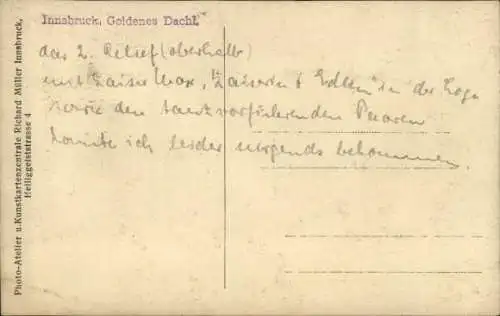 Innsbruck, Goldenes Dachl.
das 2. Relief (oberhalb)
mit Kaiser Max, Kaiserin & Edlen in der Loge
sowie den tanzvorführenden Paaren
konnte ich leider nirgends bekommen.
Photo-Atelier u. Kunstkartenzentrale Richard Müller Innsbruck,
Heiliggeiststrasse 4